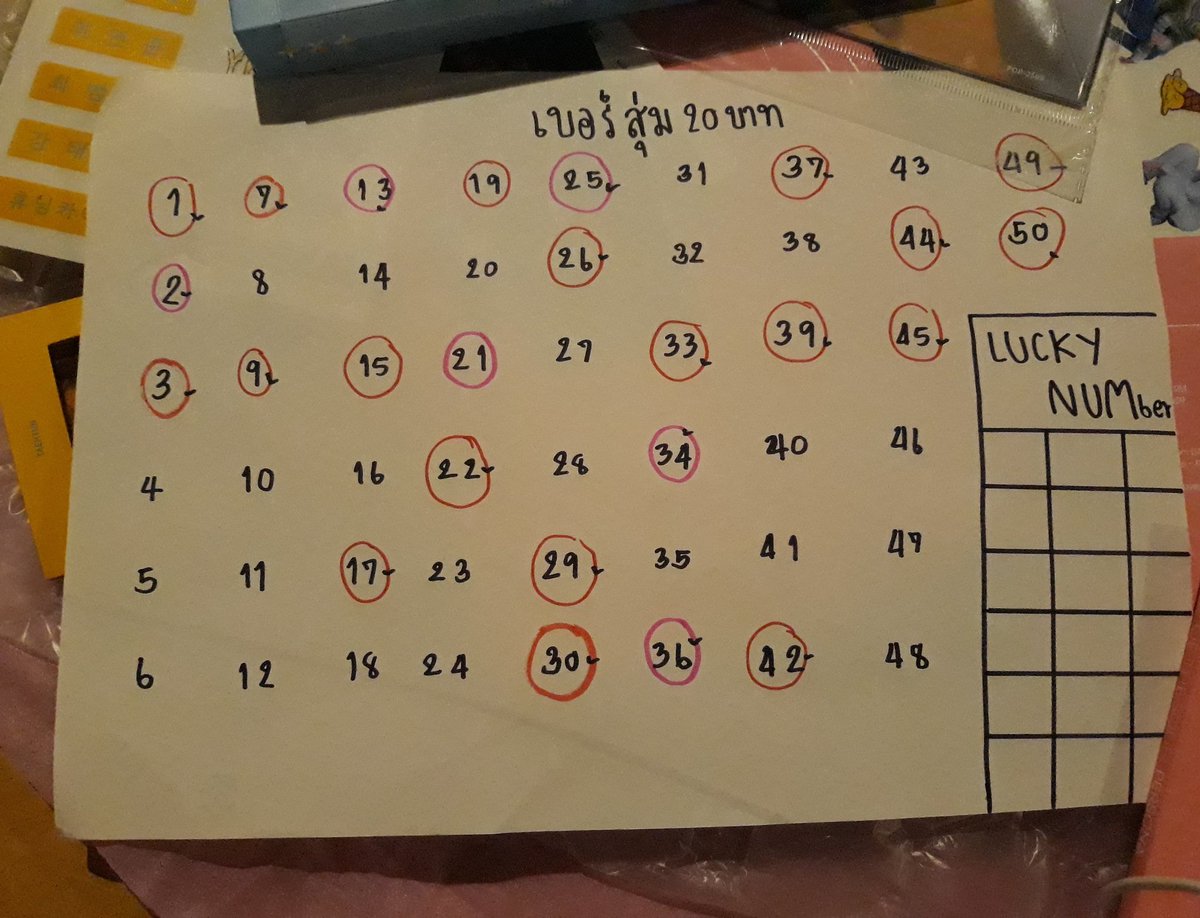 เบอร์สุ่ม 20 บาท
1 7 13 19 25 31 37 43 49
2 8 14 20 26 32 38 44 50
3 9 15 21 27 33 39 45
4 10 16 22 28 34 40 46
5 11 17 23 29 35 41 47
6 12 18 24 30 36 42 48
LUCKY
NUMber
TAEHYUN